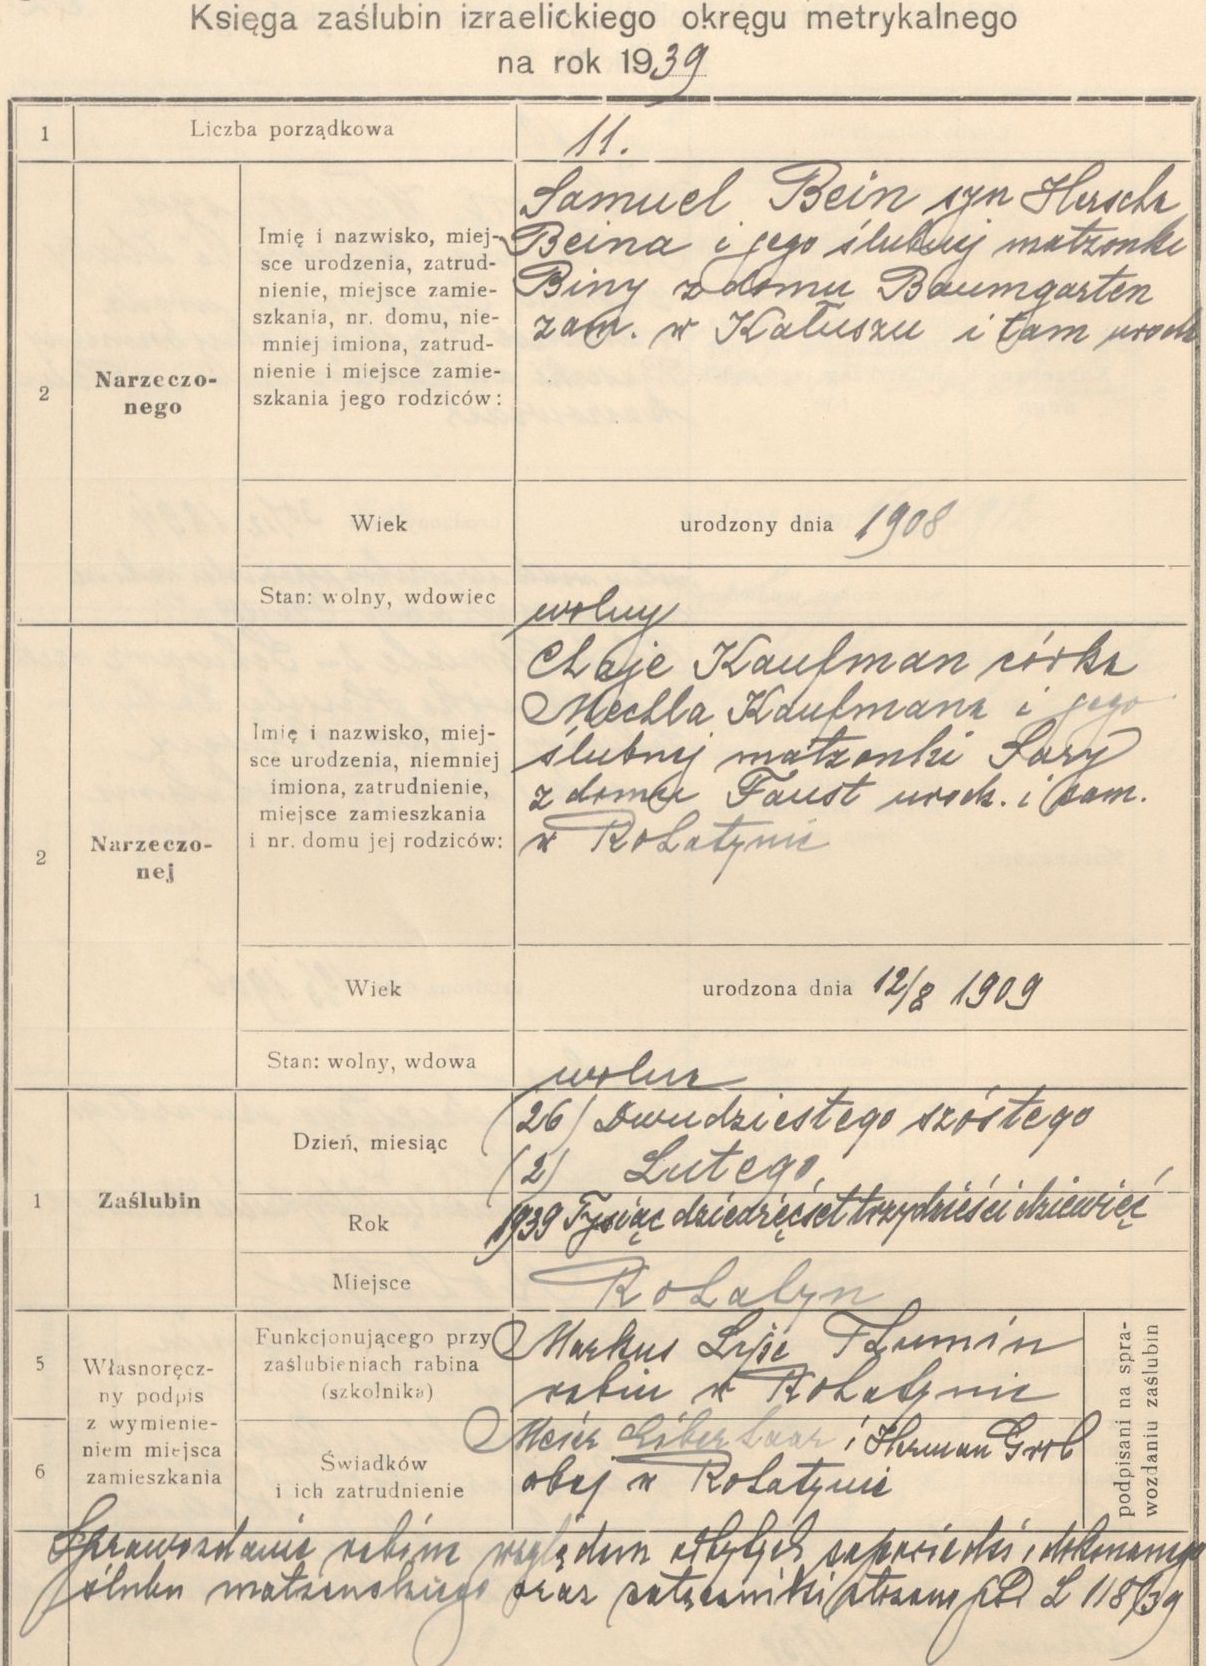 Księga zaślubin izraelickiego okręgu metrykalnego
na rok 1939
1
Liczba porządkowa
11.
2
Narzeczo-
nego
Imię i nazwisko, miej-
sce urodzenia, zatrud-
nienie, miejsce zamie-
szkania, nr. domu, nie-
mniej imiona, zatrud-
nienie i miejsce zamie-
szkania jego rodziców:
Samuel Bein syn Herscha
Beina i jego ślubnej małżonki
Biny z domu Baumgarten
zam. w Kałuszu i tam urodz.
Wiek
urodzony dnia 1908
Stan: wolny, wdowiec
wolny
2
Narzeczo-
nej
Imię i nazwisko, miej-
sce urodzenia, niemniej
imiona, zatrudnienie,
miejsce zamieszkania
i nr. domu jej rodziców:
Chaje Kaufman córka
Mechla Kaufmana i jego
ślubnej małżonki Sary
z domu Faust urodz. i zam.
w Rohatynie
Wiek
urodzona dnia 12/8 1909
Stan: wolny, wdowa
wolna
1
Zaślubin
Dzień, miesiąc
(26) Dwudziestego szóstego
(2) Lutego
Rok
1939 Tysiąc dziedzięćset trzydzieści dziewięć
Miejsce
Rohatyn
5
Własnoręcz-
ny podpis
z wymienie-
niem miejsca
zamieszkania
Funkcjonującego przy
zaślubieniach rabina
(szkolnika)
Markus Lipe Tlumin
rabin w Rohatynie
6
Świadków
i ich zatrudnienie
Meier Liber Saar i Herman Grob
obaj w Rohatynie
podpisani na spra-
wozdaniu zaślubin
Sprawozdanie rabina względem odbytych zapowiedzi i dokonanego
ślubu małżeńskiego oraz załączniki złożono L 118/39